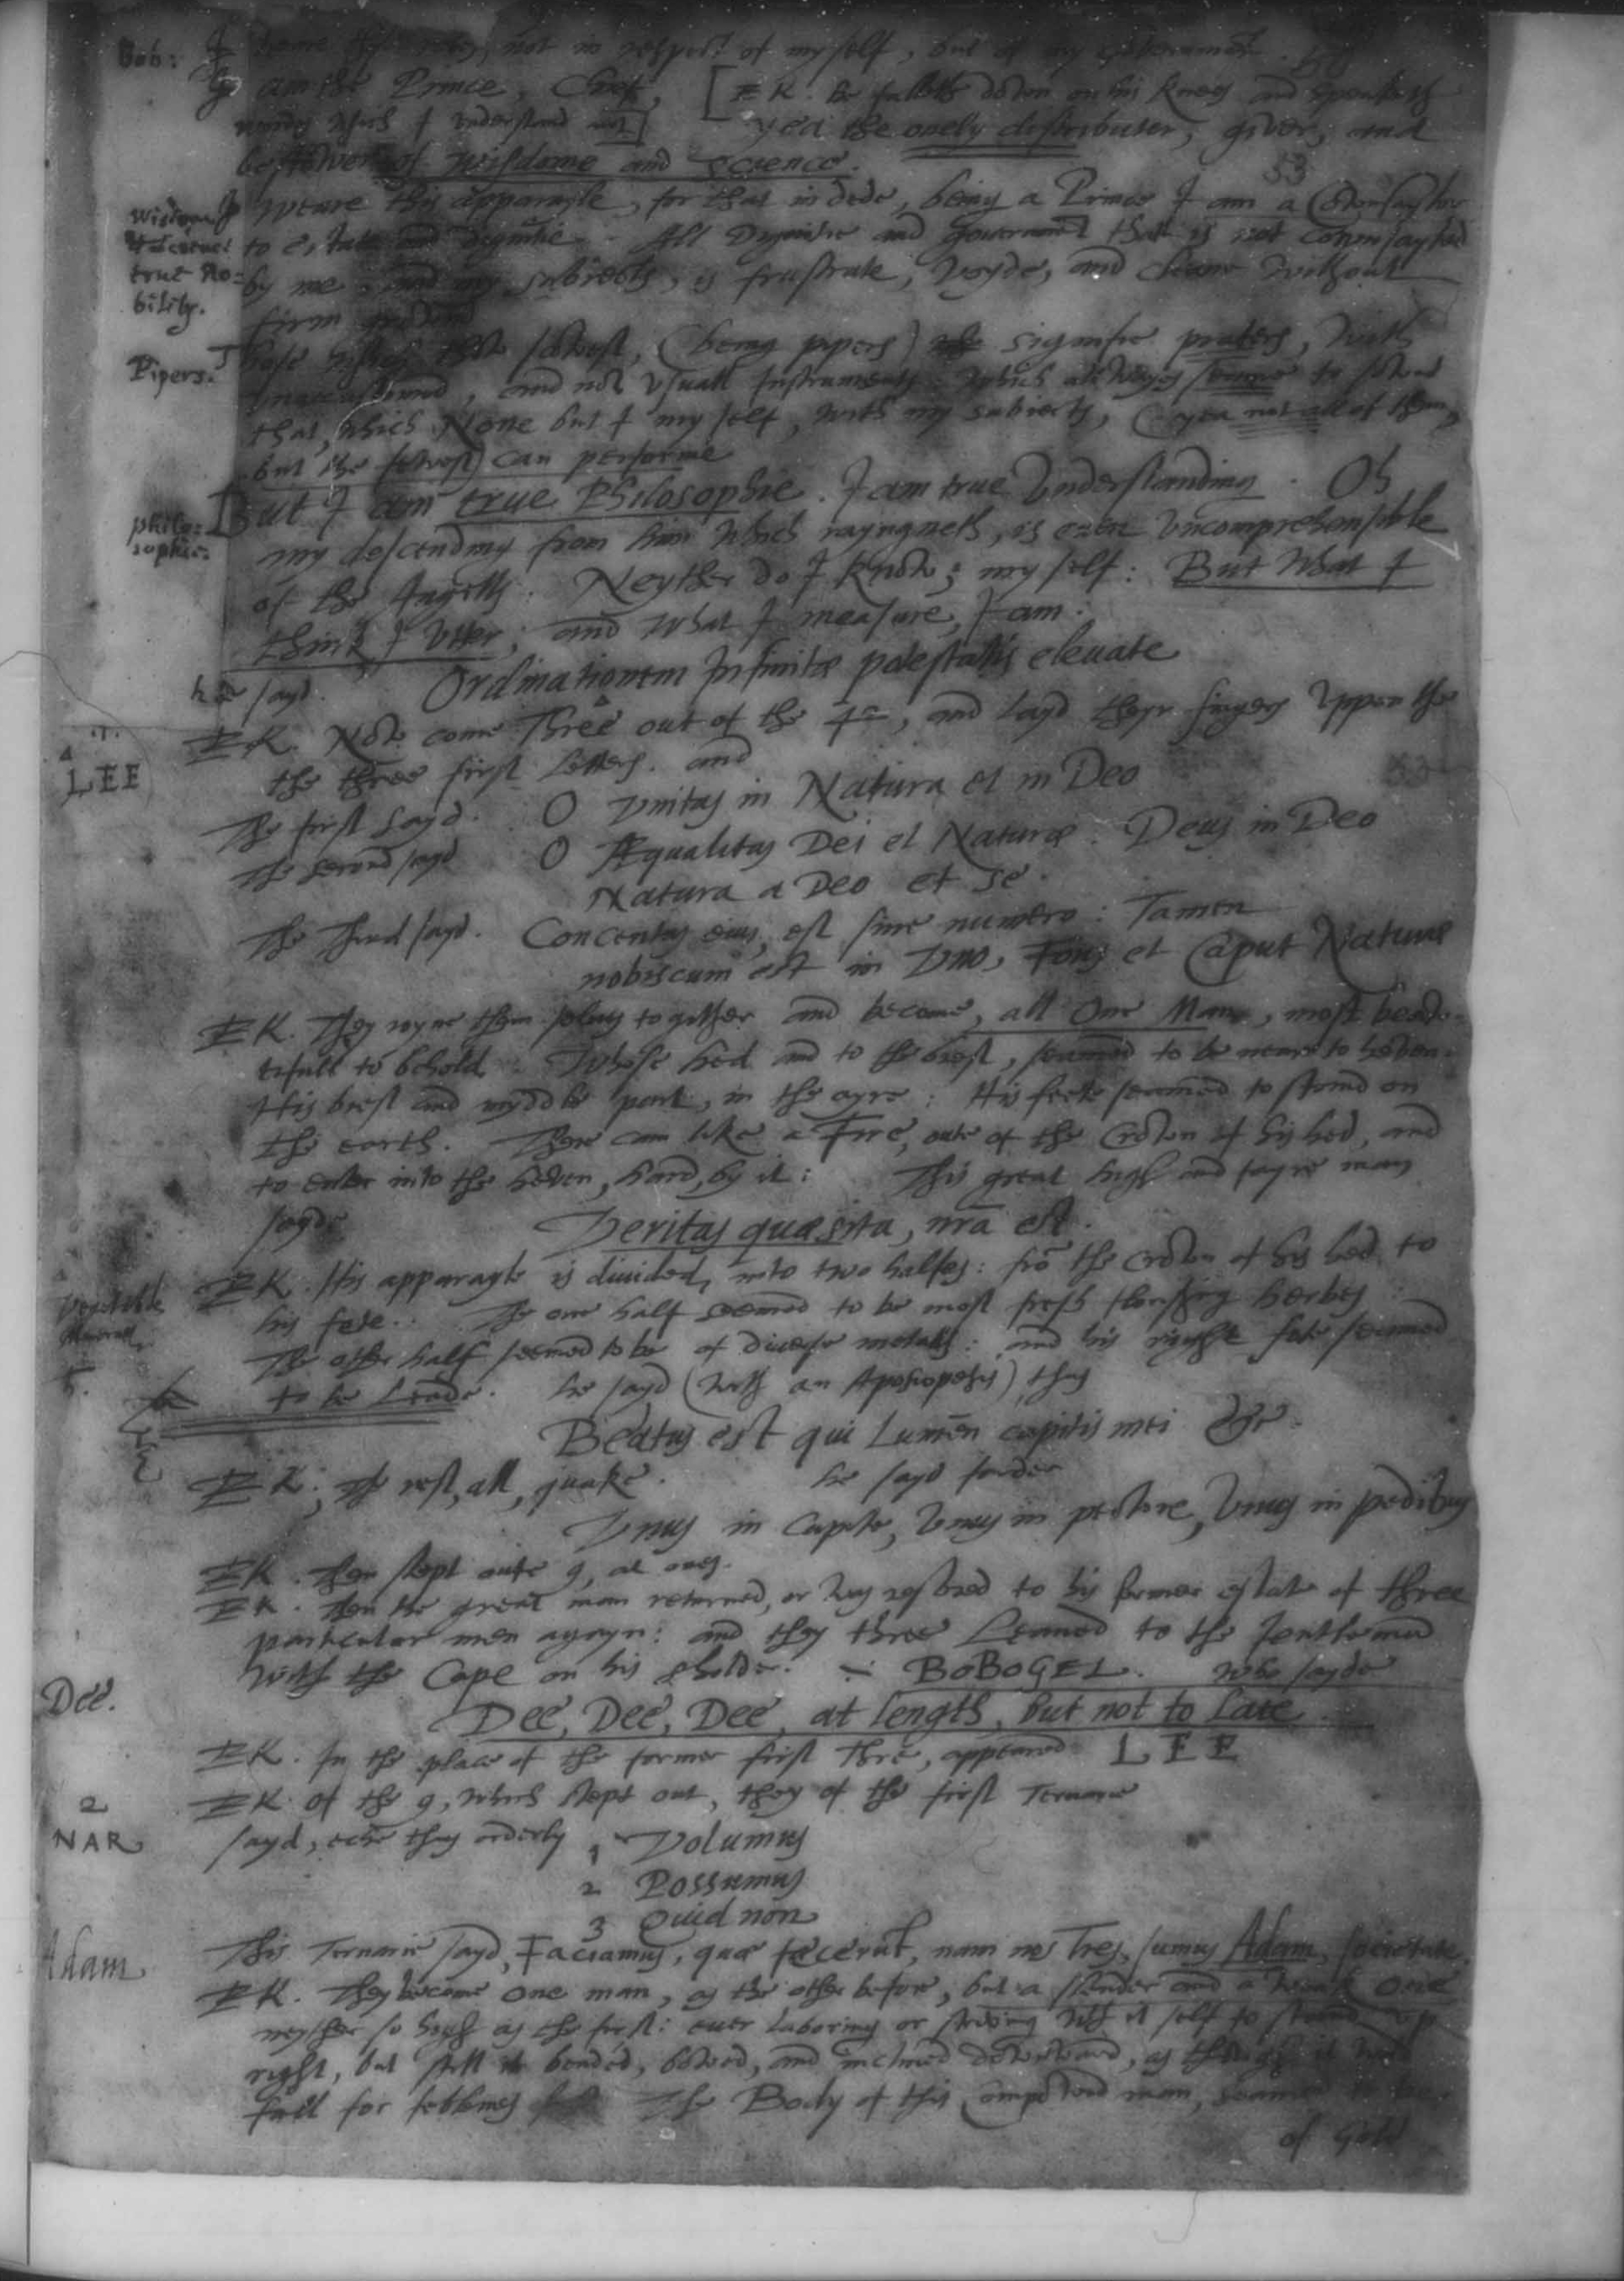 Bob: I come not in respect of my self, but of my government.
I am the Prince, Chief, [EK. he falleth down on his knees and speaketh
words which I understand not] yea the onely distributer, giver, and
bestower of wisdome and science.
53
Wisdome
true No-
bility.
I weare this apparayle, for that in dede, being a Prince I am a Cownsaylor
to estate and dignitie. All Dignitie and Government that is not cownsayled
by me, and my subiects, is frustrate, voyde, and cleane without
firm grownd
Pipers.
Those which thow sawest, (being pipers) signifie praters, with
unaccustomed, and not usuall Instruments: which allwayes seeme to sownd
that, which None but I my self, with my subiects, (yea not all of them,
but the fewest) can performe
philo-
sophie.
But I am true Philosophie. I am true Understanding. Oh
my descending from him which rayngneth, is even uncomprehensible
of the Angells: Neyther do I know, my self: But What I
think I utter, and what I measure, I am.
he sayd. Ordinationem Infinitæ potestatis elevate
.1.
LEE
EK. Now come Three out of the 42, and layd theyr fingers uppon the
the three first letters. and
The first sayd. O Unitas in Natura et in Deo
The second sayd O Æqualitas Dei et Naturæ. Deus in Deo
Natura a Deo et se.
The Third sayd. Concentus eius, est sine numero: Tamen
nobiscum est in Uno, Fons et Caput Naturæ
EK. They ioyne them selves to gither and become, all One Man, most beau-
tifull to behold: Whose hed and to the brest, seamed to be neare to heven:
His brest and myddle part, in the ayre: His feete seamed to stand on
the earth. There cam like a Fire, oute of the Crown of his hed, and
to enter into the heven, hard, by it: This great high and fayre man
sayde
Veritas quæsita, nrã est.
EK. His apparayle is divided, into two halfes: frõ the crown of his hed to
his fete. The one half seemed to be most fresh florishing herbes:
Vegitable
Minerall
The other half seemed to be of diverse metalls: and his right fote seamed
to be Leade. he sayd (with an Aposiopesis), thus
Beatus est qui Lumen capitis mei &c.
EK. The rest, all, quake. he sayd farder
Unus in Capite, Unus in pectore, Unus in pedibus
EK. Then stept oute 9, at ones.
EK. Then the great man returned, or was restored to his former estate of three
particular men agayn: and they three Leaned to the Jentleman
with the Cape on his sholder: BOBOGEL. who sayde
Dee.
Dee, Dee, Dee, at length, but not to Late
EK. In the place of the former first thre, appeared LEE
2
NAR
EK. Of the 9, which stept out, they of the first Ternarie
sayd, eche thus orderly 1 Volumus
2 Possumus
3 Quid non
Adam
This Ternarie sayd, Faciamus, quæ fecerūt, nam nos Tres, sumus Adam, societate
EK. They become one man, as the other before, but a slender and a weak one
neyther so high as the first: ever laboring or striving with it self to stand up
right, but still it bended, bowed, and inclined downward, as though it wold
fall for feblenes The Body of this compownd man, seamed to be
of Gold